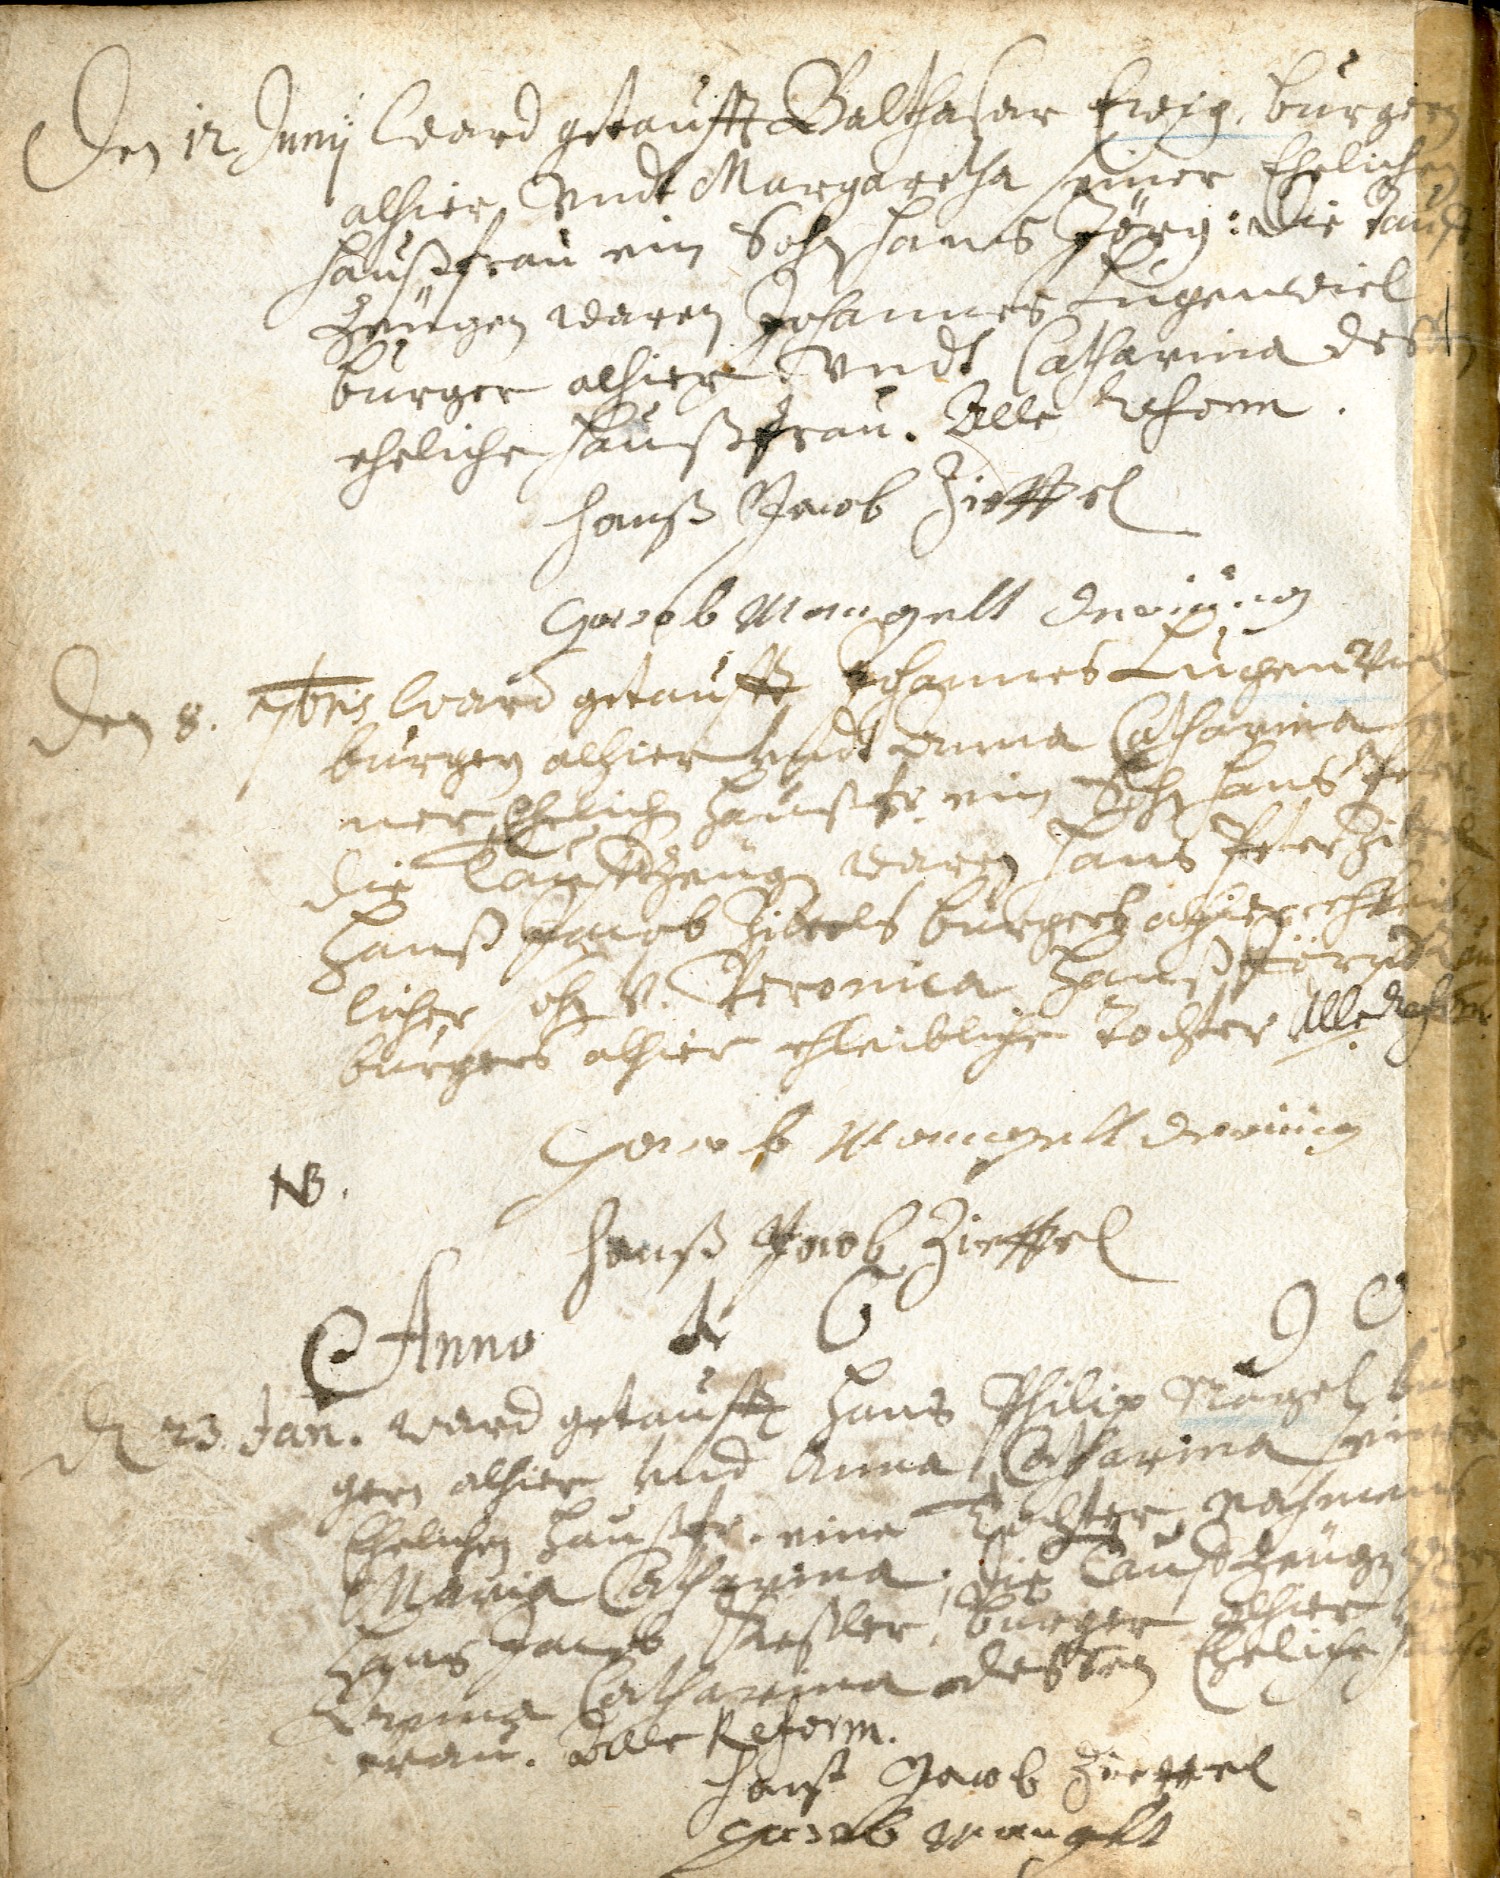 Den 12. Junij ward getaufft Balthasar Ewig, burgern
alhier, Undt Margaretha seiner Ehelichen
haußfrau ein Sohn Hans Jörg: Die Tauff
Zeügen waren Johannes Lugenbiel
burger alhier Undt Catharina dessen
eheliche haußfrau. Alle Reform.
Hanß Jacob Zieffel
Jacob Mangelt der iüng
Den 8. 7bris Ward getaufft Johannes Lugenbiel
burgern alhier Undt Anna Catharina sei
ner Ehelich haußfr. ein Sohn Hans Peter
die Tauffzeüg waren Hans Peter
Hanß Jacob burgers alhier ehleib
licher sohn v. Veronica Hanß Jörg
burgers alhier ehleibliche Tochter Alle Reform
Jacob Mangelt der iüng
NB.
Hanß Jacob Zieffel
Anno 1 6 9 0
D 23. Jan. ward getaufft Hans Philip Nagel bur
gern alhier und Anna Catharina seiner
Ehelichen haußfr. eine Tochter, nahmens
Maria Catharina, die Tauffzeügen
Hans Jacob Keßler, burger alhier
Catharina dessen Eheliche hauß
frau. Alle Reform.
Hanß Jacob Zieffel
Jacob Mangelt